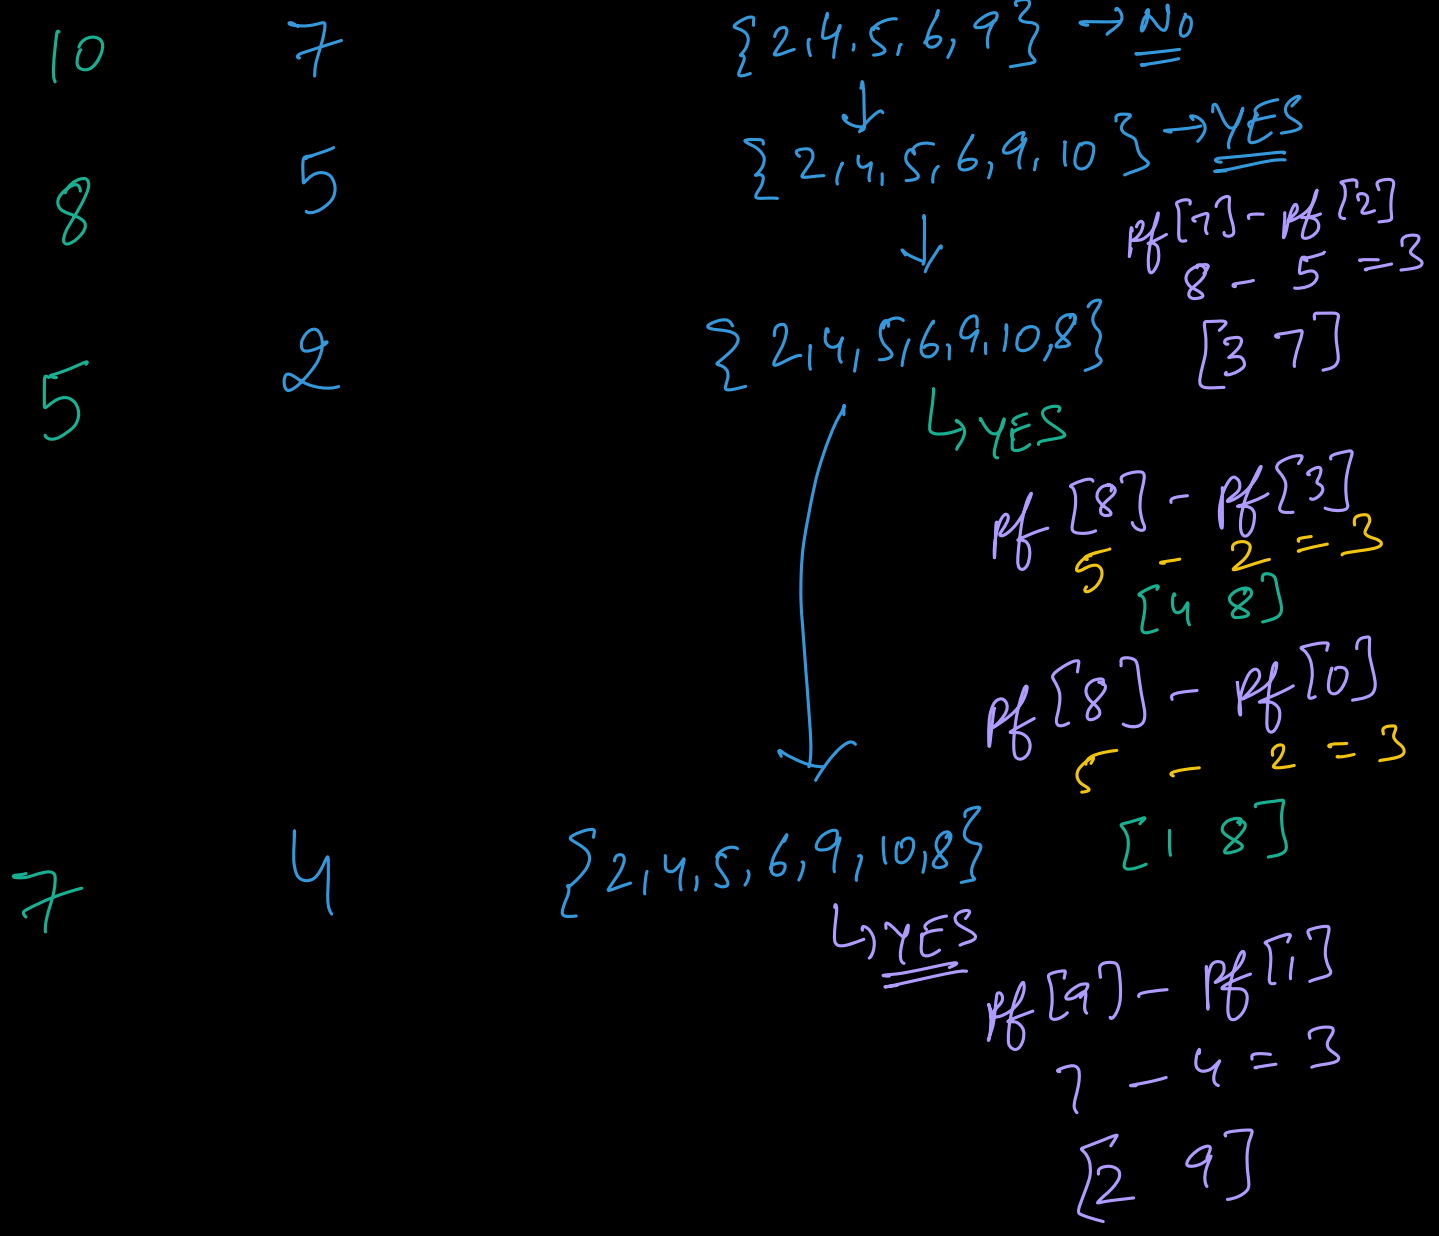 10 7 {2,4,5,6,9} → No
↓
{2,4,5,6,9,10} → YES
8 5
↓
pf[7] - pf[2]
8 - 5 = 3
[3 7]
5 2 {2,4,5,6,9,10,8}
↳ YES
pf[8] - pf[3]
5 - 2 = 3
[4 8]
pf[8] - pf[0]
5 - 2 = 3
[1 8]
7 4 {2,4,5,6,9,10,8}
↳ YES
pf[9] - pf[1]
7 - 4 = 3
[2 9]